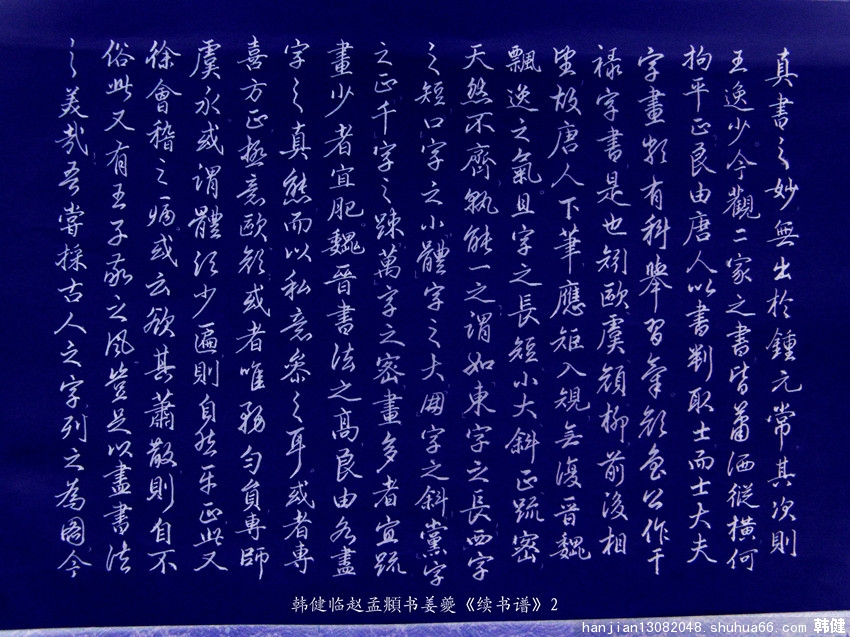 真書之妙無出於鍾元常其次則
王逸少今觀二家之書皆蕭洒縱橫何
拘平正良由唐人以書判取士而士大夫
字畫類有科舉習氣顔魯公作干
祿字書是也矧歐虞顔柳前後相
望故唐人下筆應矩入規無復晉魏
飄逸之氣且字之長短小大斜正疏密
天然不齊孰能一之謂如東字之長西字
之短口字之小體字之大朋字之斜黨字
之正千字之疎萬字之密畫多者宜疏
畫少者宜肥魏晉書法之高良由各盡
字之真態而以私意參之耳或者專
喜方正極意歐顔或者唯務勻負專師
虞永或謂體須少匾則自然平正此又
徐會稽之病或云欲其蕭散則自不
俗此又有王子敬之风豈足以盡書法
之美哉吾嘗採古人之字列之為圖今
韩健临赵孟頫书姜夔《续书谱》2
hanjian13082048.shuhua66.com 韩健